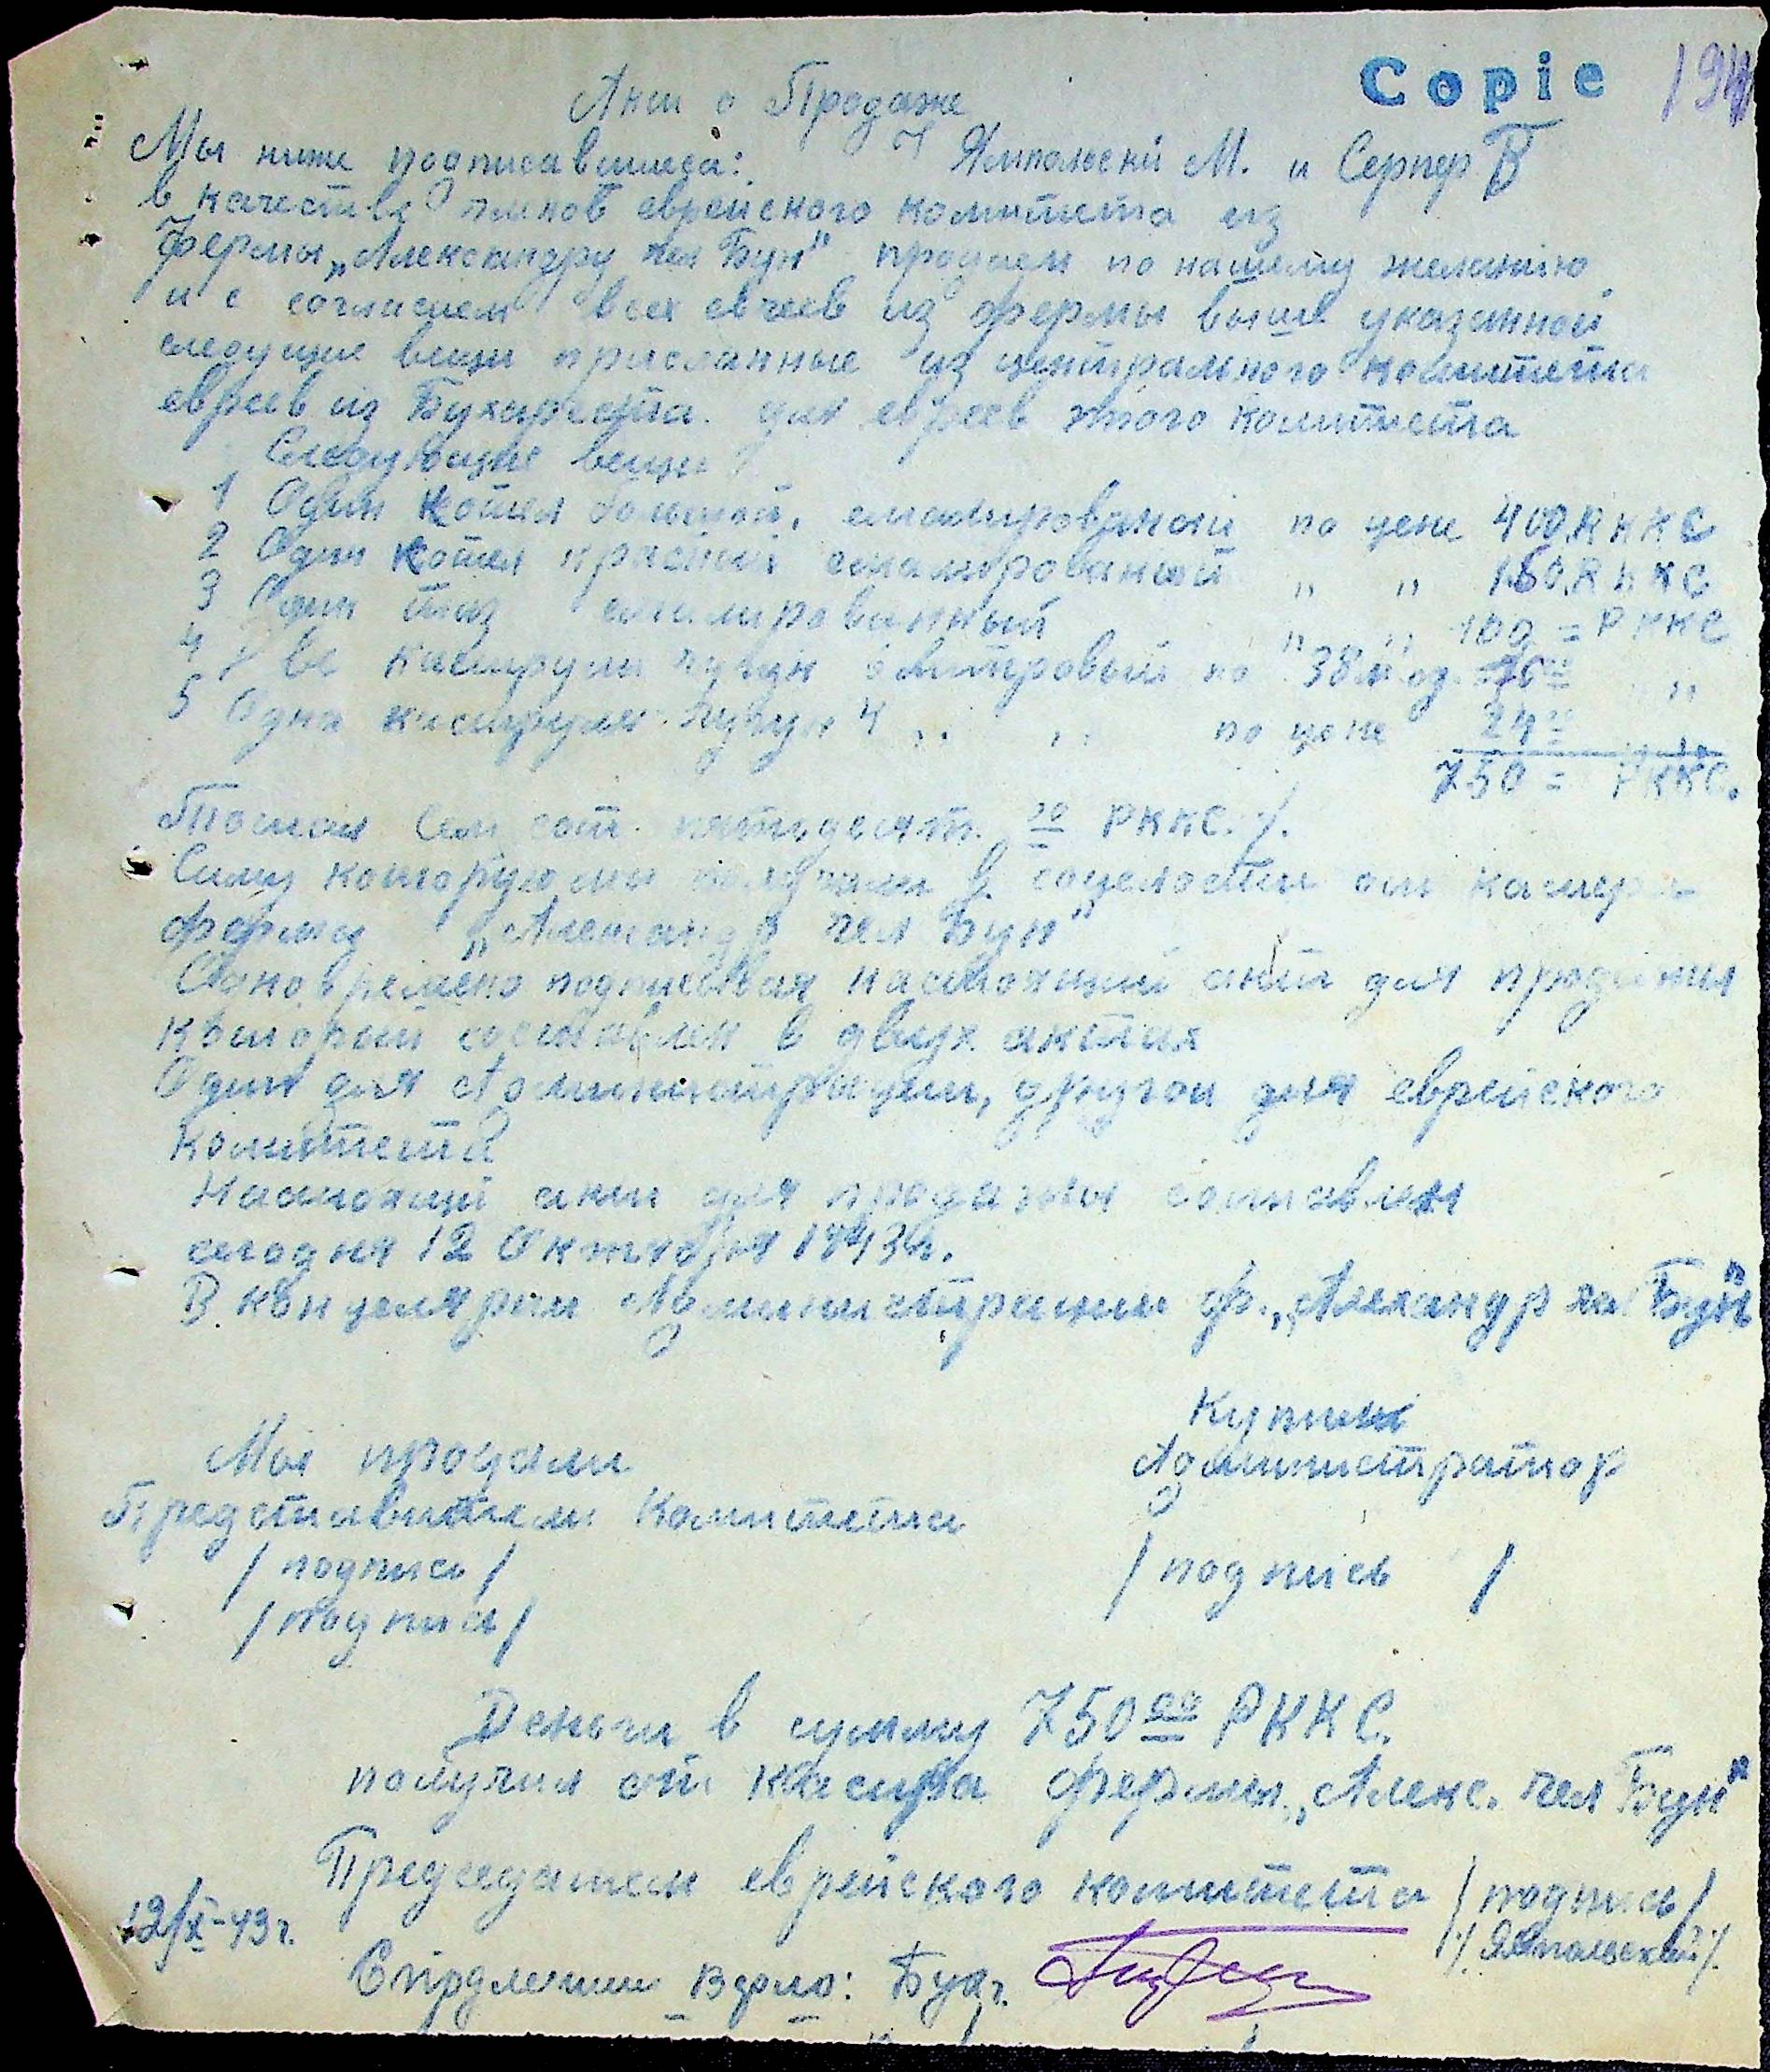 Copie 194
Акт о Продаже
Мы ниже подписавшиеся: Ямпольский М. и Серпер В
в качестве членов еврейского комитета из
фермы „Александру чел Бун" продаем по нашему желанию
и с согласием всех евреев из фермы выше указанной
следущие вещи присланные из центрального комитета
евреев из Бухареста. для евреев этого комитета
Следующие вещи
1 Один котел большой, емалированый по цене 400 RKKC
2 Один котел красный емалированый " " 150 RKKC
3 Один таз емалированный " " 100 = РККС
4 Две каструли чугун 6 литровый по 38 м. од. 76 оо " "
5 Одна кастрюля чугун 4 " " по цене 24 оо " "
750 = РККС.
Тоталь Сем сот пятьдесят оо РККС./.
Суму которую мы получили в соцелости от касиера
фермы „Александр чел Бун"
Одновремено подписывая настоящий акт для продажи
который составлен в двух актах
Один для Администрации, другой для еврейского
комитета
Настоящий акт для продажи составлен
сегодня 12 Октября 1943 г.
В канцелярии Администрации ф. „Александр чел Бун"
Купил
Мы продали Администратор
Представители Комитета
/ подпись / / подпись /
/ подпись /
Деньги в сумму 750 оо РККС.
получил от касира фермы „Алекс. чел Бун"
Председатель еврейского комитета / подпись /
12/X-43 г. /./ Ямпольский /./
Бух.